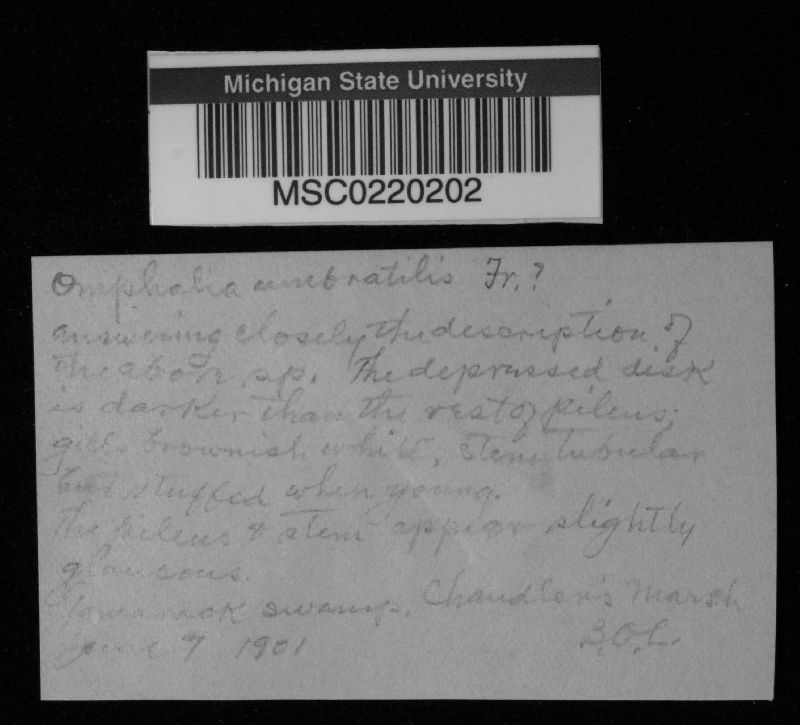 Michigan State University
MSC0220202
Omphalia umbratilis Fr.?
answering closely the description of
the above sp. The depressed disk
is darker than the rest of pileus;
gills brownish white, stem tubular
but stuffed when young.
The pileus & stem appear slightly
glaucous.
Tamarack swamp, Chandler's Marsh
June 7 1901 B.O.L.